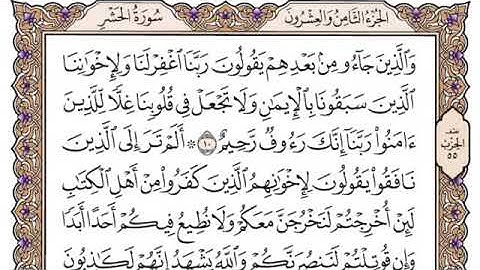 سُورَةُ الحَشْرِ الجُزْءُ الثَّامِنُ وَالعِشْرُونَ
وَٱلَّذِينَ جَآءُو مِنۢ بَعْدِهِمْ يَقُولُونَ رَبَّنَا ٱغْفِرْ لَنَا وَلِإِخْوَٰنِنَا
ٱلَّذِينَ سَبَقُونَا بِٱلْإِيمَٰنِ وَلَا تَجْعَلْ فِى قُلُوبِنَا غِلًّا لِّلَّذِينَ
ءَامَنُوا۟ رَبَّنَآ إِنَّكَ رَءُوفٌ رَّحِيمٌ ١٠ ۞ أَلَمْ تَرَ إِلَى ٱلَّذِينَ
نَافَقُوا۟ يَقُولُونَ لِإِخْوَٰنِهِمُ ٱلَّذِينَ كَفَرُوا۟ مِنْ أَهْلِ ٱلْكِتَٰبِ
لَئِنْ أُخْرِجْتُمْ لَنَخْرُجَنَّ مَعَكُمْ وَلَا نُطِيعُ فِيكُمْ أَحَدًا أَبَدًا
وَإِن قُوتِلْتُمْ لَنَنصُرَنَّكُمْ وَٱللَّهُ يَشْهَدُ إِنَّهُمْ لَكَٰذِبُونَ
نصف
الحزب
٥٥